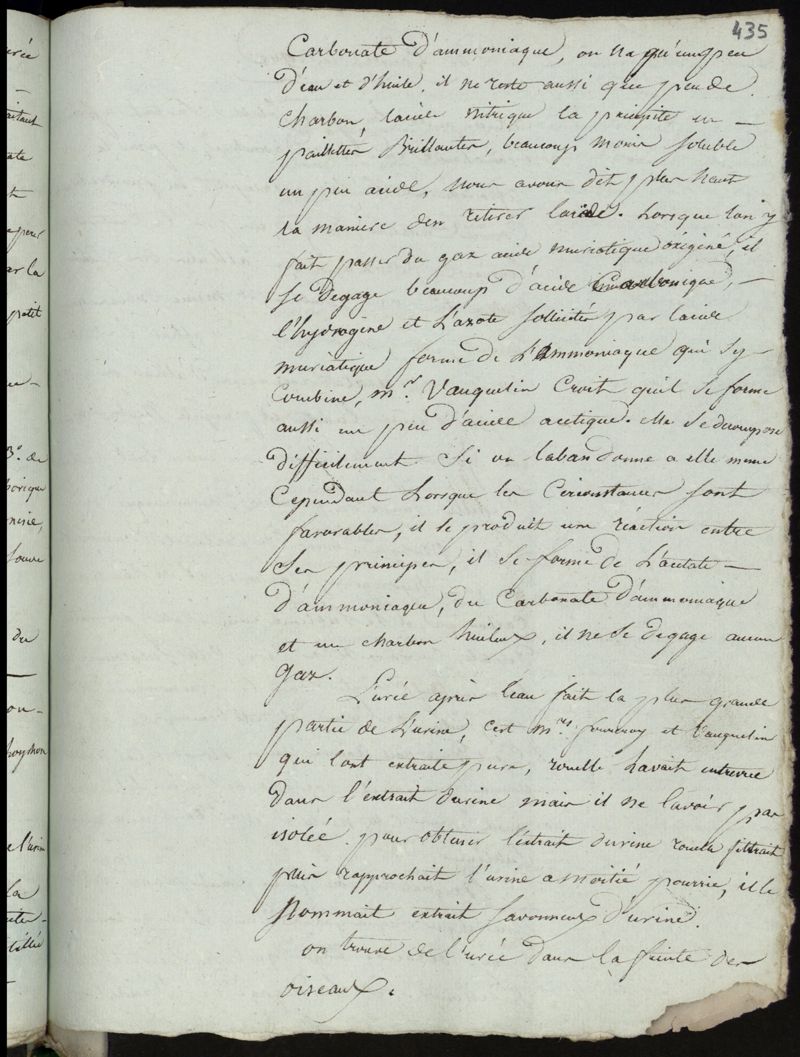 435
Carbonate d'ammoniaque, on n'a qu'un peu
d'eau et d'huile, il ne reste aussi que peu de
charbon, lacide nitrique la precipite en —
paillettes Brillantes, beaucoup moins soluble
un peu acide, nous avons dit plus haut
la maniere den retirer lacide. Lorsque lon y
fait passer du gaz acide muriatique oxigéné, il
se degage beaucoup d'acide Carbonique, —
l'hydrogene et L'azote sollicités par lacide
muriatique forme de L'ammoniaque qui sy
Combine, mr. Vauquelin Croit quil se forme
aussi un peu d'acide acetique. elle se decompose
difficilement Si on labandonne a elle meme
Cependant Lorsque les Circonstances sont
favorables, il se produit une réaction entre
ses principes, il se forme de L'acetate —
D'ammoniaque, du Carbonate D'ammoniaque
et un charbon huileux, il ne se degage aucun
gaz.
L'urée apres leau fait la plus grande
partie de L'urine, c'est mrs. fourcroy et Vauquelin
qui lont extraite pure, rouelle Lavait entrevue
dans l'extrait durine mais il ne lavoit pas
isolée. pour obtenir lextrait durine rouelle filtrait
puis rapprochait l'urine a moitié pourrie, il le
Nommait extrait savonneux d'urine.
on trouve de l'urée dans la fiente des
oiseaux.
urée
—
ate
par la
petit
3o. de
du
—
la
—